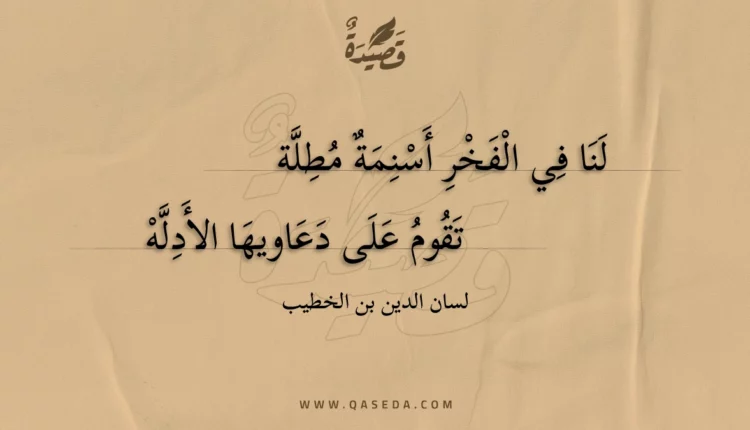 قَصِيدَةٌ
لَنَا فِي الْفَخْرِ أَسْنِمَةٌ مُطِلَّة
تَقُومُ عَلَى دَعَاويهَا الأَدِلَّهْ
لسان الدين بن الخطيب
WWW.QASEDA.COM